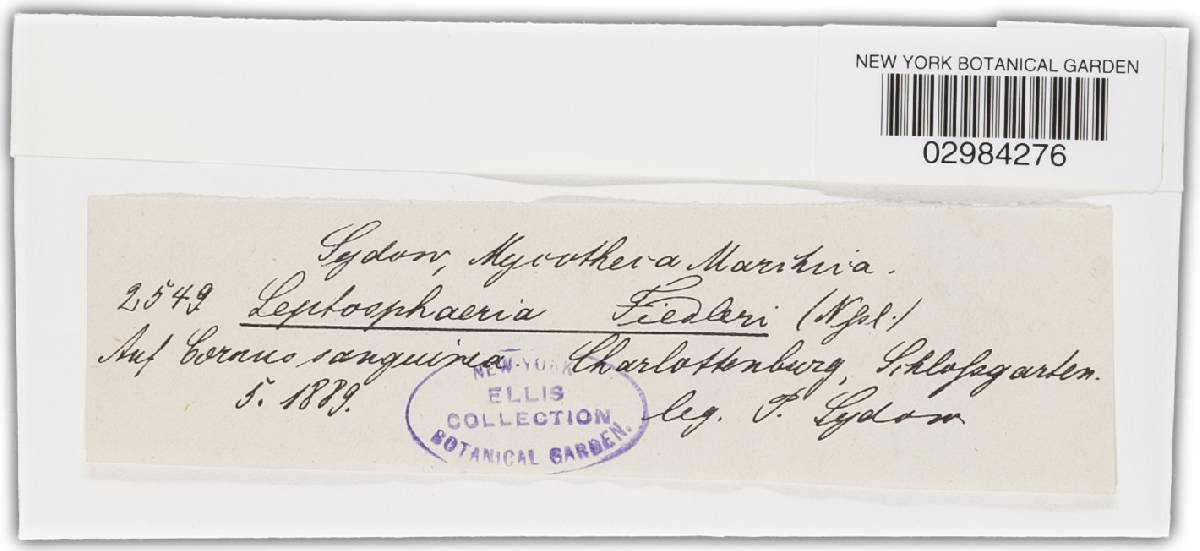 NEW YORK BOTANICAL GARDEN
02984276
Sydow, Mycotheca Marchica.
2549 Leptosphaeria Fiedleri (Nssl.)
Auf Cornus sanguinea Charlottenburg, Schloßgarten.
5. 1889. leg. P. Sydow
NEW-YORK
ELLIS
COLLECTION
BOTANICAL GARDEN.